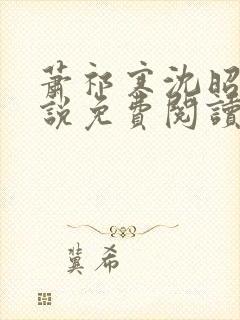 蕭祁寒沈昭
說免費閱讀
冀希